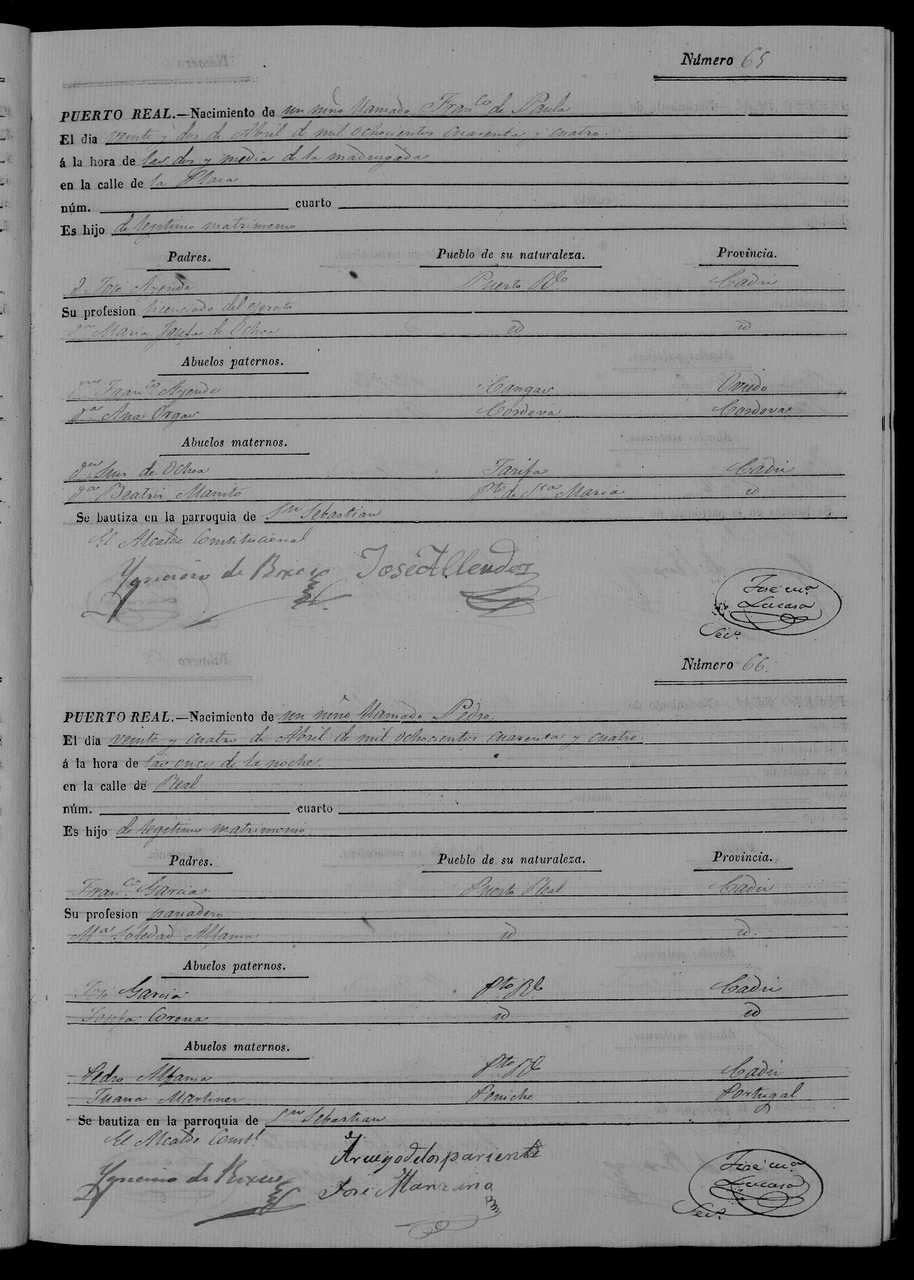 Número 65
PUERTO REAL.—Nacimiento de un niño llamado Fran.co de Paula
El dia veinte y dos de Abril de mil ochocientos cuarenta y cuatro
á la hora de las dos y media de la madrugada
en la calle de la Plaza
núm. cuarto
Es hijo de legitimo matrimonio
Padres. Pueblo de su naturaleza. Provincia.
D. José Puerto Rl. Cadiz
Su profesion licenciado del egercito
D.ña Maria Josefa de Ochoa id id
Abuelos paternos.
D.n Fran.co Cangas Oviedo
D.a Ana Cordova Cordova
Abuelos maternos.
D.n Luis de Ochoa Tarifa Cadiz
D.a Beatriz Pto. de Sta. Maria id
Se bautiza en la parroquia de Sn Sebastian
El Alcalde Constitucional
Ygnacio de José Allendes
José M.a
Lucasa
Sec.o
Número 66
PUERTO REAL.—Nacimiento de un niño llamado Pedro
El dia veinte y cuatro de Abril de mil ochocientos cuarenta y cuatro
á la hora de las once de la noche
en la calle de Real
núm. cuarto
Es hijo de legitimo matrimonio
Padres. Pueblo de su naturaleza. Provincia.
Fran.co Garcia Puerto Real Cadiz
Su profesion panadero
M.a Soledad id id.
Abuelos paternos.
José Garcia Pto. Rl. Cadiz
Josefa Corona id id
Abuelos maternos.
Pedro Pto. Rl. Cadiz
Juana Martinez Peniche Portugal
Se bautiza en la parroquia de Sn Sebastian
El Alcalde Constl.
Ygnacio de Aruego de los pariente
José Manzano
José M.a
Lucasa
Sec.o